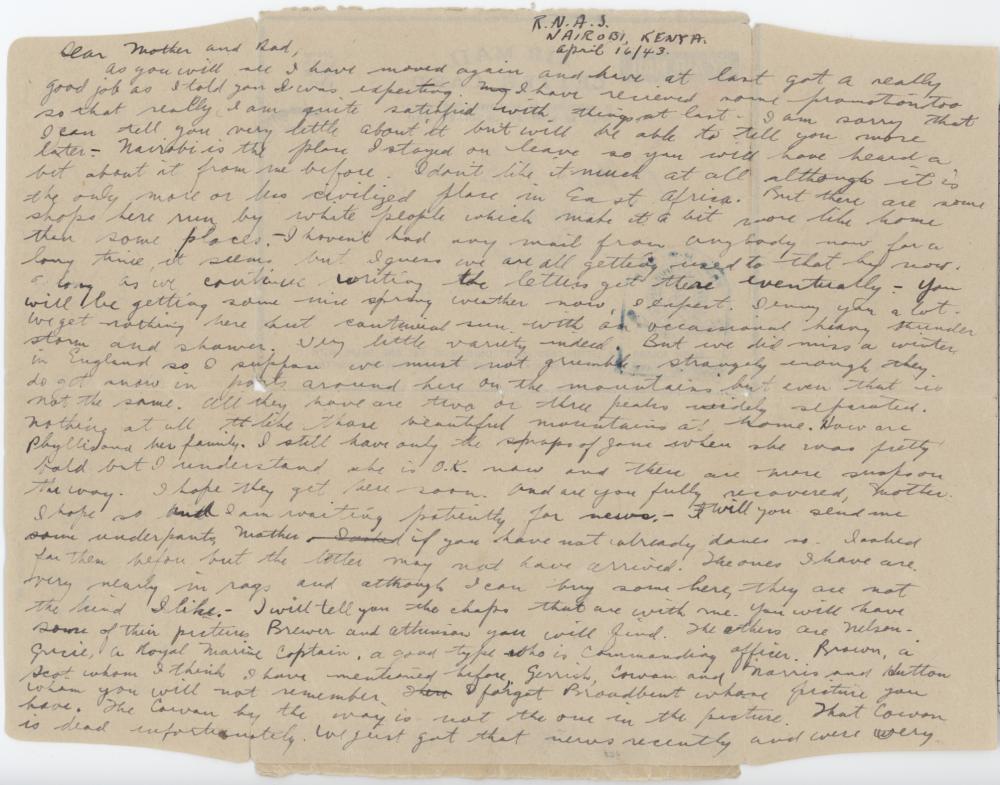 R.N.A.S.
NAIROBI, KENYA.
April 16/43.
Dear Mother and Dad,
As you will see I have moved again and have at last got a really
good job as I told you I was expecting. I have recieved some promotion too
so that really I am quite satisfied with things at last - I am sorry that
I can tell you very little about it but will be able to tell you more
later - Nairobi is the place I stayed on leave so you will have heard a
bit about it from me before. I don't like it much at all although it is
the only more or less civilized place in East Africa. But there are some
shops here run by white people which make it a bit more like home
than some places. - I haven't had any mail from anybody now for a
long time, it seems but I guess we are all getting used to that by now.
as long as we continue writing the letters get there eventually - You
will be getting some nice spring weather now, I expect. I envy you a lot.
We get nothing here but continual sun with an occassional heavy thunder
storm and shower. Very little variety indeed. But we did miss a winter
in England so I suppose we must not grumble - strangely enough they
do get snow in parts around here on the mountains but even that is
not the same. All they have are two or three peaks widely separated.
Nothing at all like those beautiful mountains at home. How are
Phyllis and her family. I still have only the snaps of Jane when she was pretty
bald but I understand she is O.K. now and there are more snaps on
the way. I hope they get here soon. And are you fully recovered, Mother.
I hope so and I am waiting patiently for news. - Will you send me
some underpants, Mother, if you have not already done so. I asked
for them before but the letter may not have arrived. The ones I have are
very nearly in rags and although I can buy some here, they are not
the kind I like. - I will tell you the chaps that are with me. You will have
some of their pictures Brewer and Atkinson you will find. The others are Nelson-
Gracie, a Royal Marine Captain, a good type who is commanding officer. Brown, a
Scot whom I think I have mentioned before, Gerrish, Cowan and Norris and Hutton
whom you will not remember. I forgot Broadbent whose picture you
have. The Cowan by the way is not the one in the picture. That Cowan
is dead unfortunately. We just got that news recently and were very